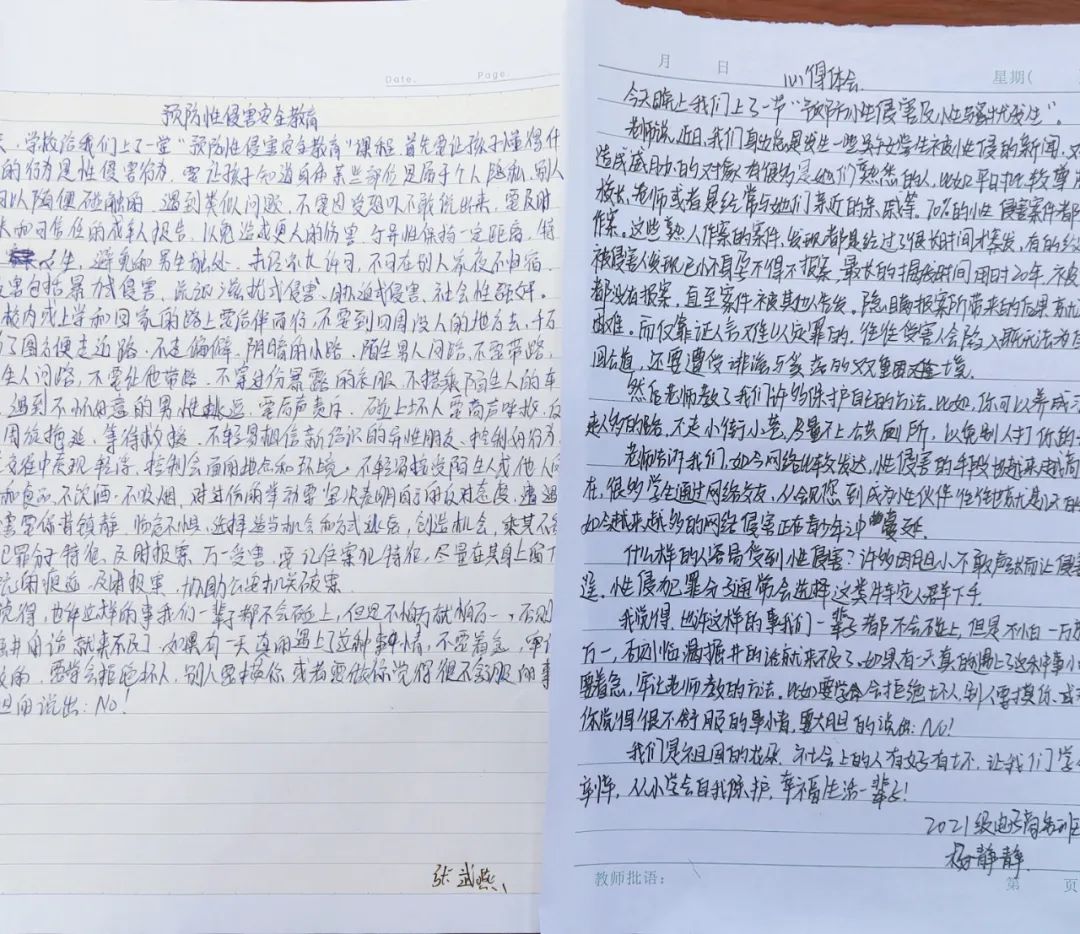 Date.
Page
预防性侵害安全教育
,学校给我们上了一堂"预防性侵害安全教育"课程,首先要让孩子懂得什
的行为是性侵害行为,要让孩子知道身体某些部位是属于个人隐私,别人
可以随便碰触的,遇到类似问题,不要因受恐吓不敢说出来,要及时
和可信任的成年人报告,以免造成更大的伤害,与异性保持一定距离,特
女生,避免和男生独处,未经家长许可,不可在别人家夜不归宿.
害包括暴力式侵害、流氓滋扰式侵害、胁迫式侵害、社会性强奸.
校内或上学和回家的路上要结伴而行,不要到四周没人的地方去,千万
了图方便走近路,不走偏僻、阴暗的小路,陌生男人问路,不要带路,
生人问路,不要让他带路,不穿过份暴露的衣服,不搭乘陌生人的车
遇到不怀好意的男性挑逗,要厉声责斥,碰上坏人要高声呼救,
周旋拖延,等待救援,不轻易相信新结识的异性朋友,控制好
交往中表现轻浮,控制会面的地点和环境。不轻易接受陌生人或他人
和食品,不饮酒,不吸烟,对过份的举动要坚决表明自己的反对态度,遭遇
害要保持镇静,临危不惧,选择适当机会和方式逃脱,创造机会,乘其不备
犯罪分子特征,及时报案,万一受害,要记住案犯特征,尽量在其身上留下
的痕迹,及时报案,协助公安机关破案.
觉得,也许这样的事我们一辈子都不会碰上,但是不怕一万就怕万一,否则
掘井的话就来不及了.如果有一天真的遇上了这种事情,不要着急,牢记
教的,要学会拒绝坏人,别人要摸你或者要做你觉得很不舒服的事
胆的说出:No!
张武燕
月 日 星期(
心得体会
今天晚上我们上了一节"预防性侵害及小性与暴力发生"。
老师说,近日,我们身边总是发生一些关于女学生被性侵的新闻,
造成威胁的对象有很多是她们熟悉的人,比如平日中比较尊
校长、老师或者是经常与她们亲近的亲戚等。70%的性侵害案件都
作案。这些熟人作案的案件,发现都是经过了很长时间才案发,有的
被侵害人发现已怀孕不得不报案,最长的揭发时间用时20年,被
都没有报案,直至案件被其他告发。隐瞒报案所带来的后果
困难。而仅靠证人言又难以定罪的,往往受害人会陷入既无法为自
回公道,还要遭受诽谤与歧视的双重困难境。
然后老师教了我们许多保护自己的方法.比如,你可以养成
走人多的路,不走小街小巷,尽量不上公共厕所,以免别人打你的
老师告诉我们,如今网络比较发达,性侵害的手段也越来越
在,很多学生通过网络交友,从会见您到成为性伙伴往往
如今越来越多的网络侵害正在青少年之中蔓延.
什么样的人容易受到性侵害?许多因胆小不敢声张而让侵害
遥,性侵犯罪分子通常会选择这类特定人群下手.
我觉得,也许这样的事我们一辈子都不会碰上,但是不怕一万
万一,否则临渴掘井的话就来不及了。如果有一天真的遇上了这种事
要着急,牢记老师教的方法.比如要学会拒绝坏人,别人要摸你、或
你觉得很不舒服的事情,要大胆的说出:No!
我们是祖国的花朵,社会上的人有好有坏,让我们学
到,从小学会自我保护,幸福生活一辈子!
2021级电子商务班
杨静静
教师批语:
第 页